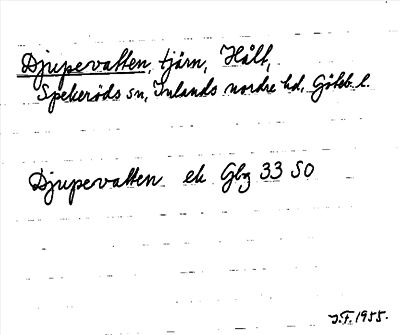 Djupevatten, tjärn, Hålt,
Spekeröds sn, Inlands nordre hd, Göteb. l.
Djupevatten ek Gbg 33 SO
J.F. 1955.